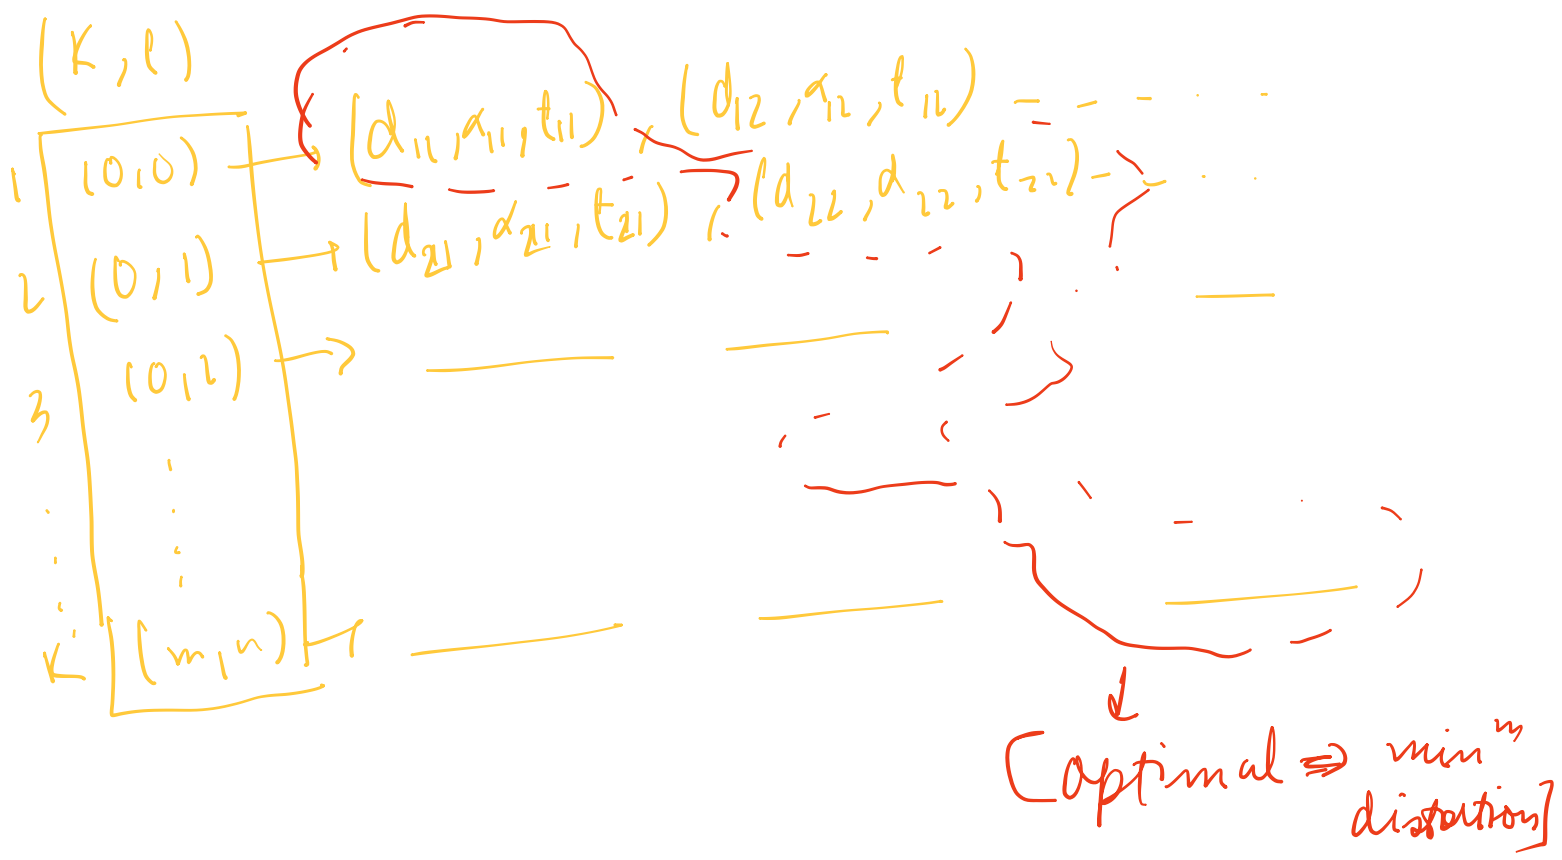 (K, l)
1 (0,0) → (d11, α11, t11), (d12, α12, t12) - - - . -
2 (0,1) → (d21, α21, t21), (d22, d22, t22) - - . .
3 (0,2) →
K (m,n) →
[optimal ⇒ minᵐ
distortion]